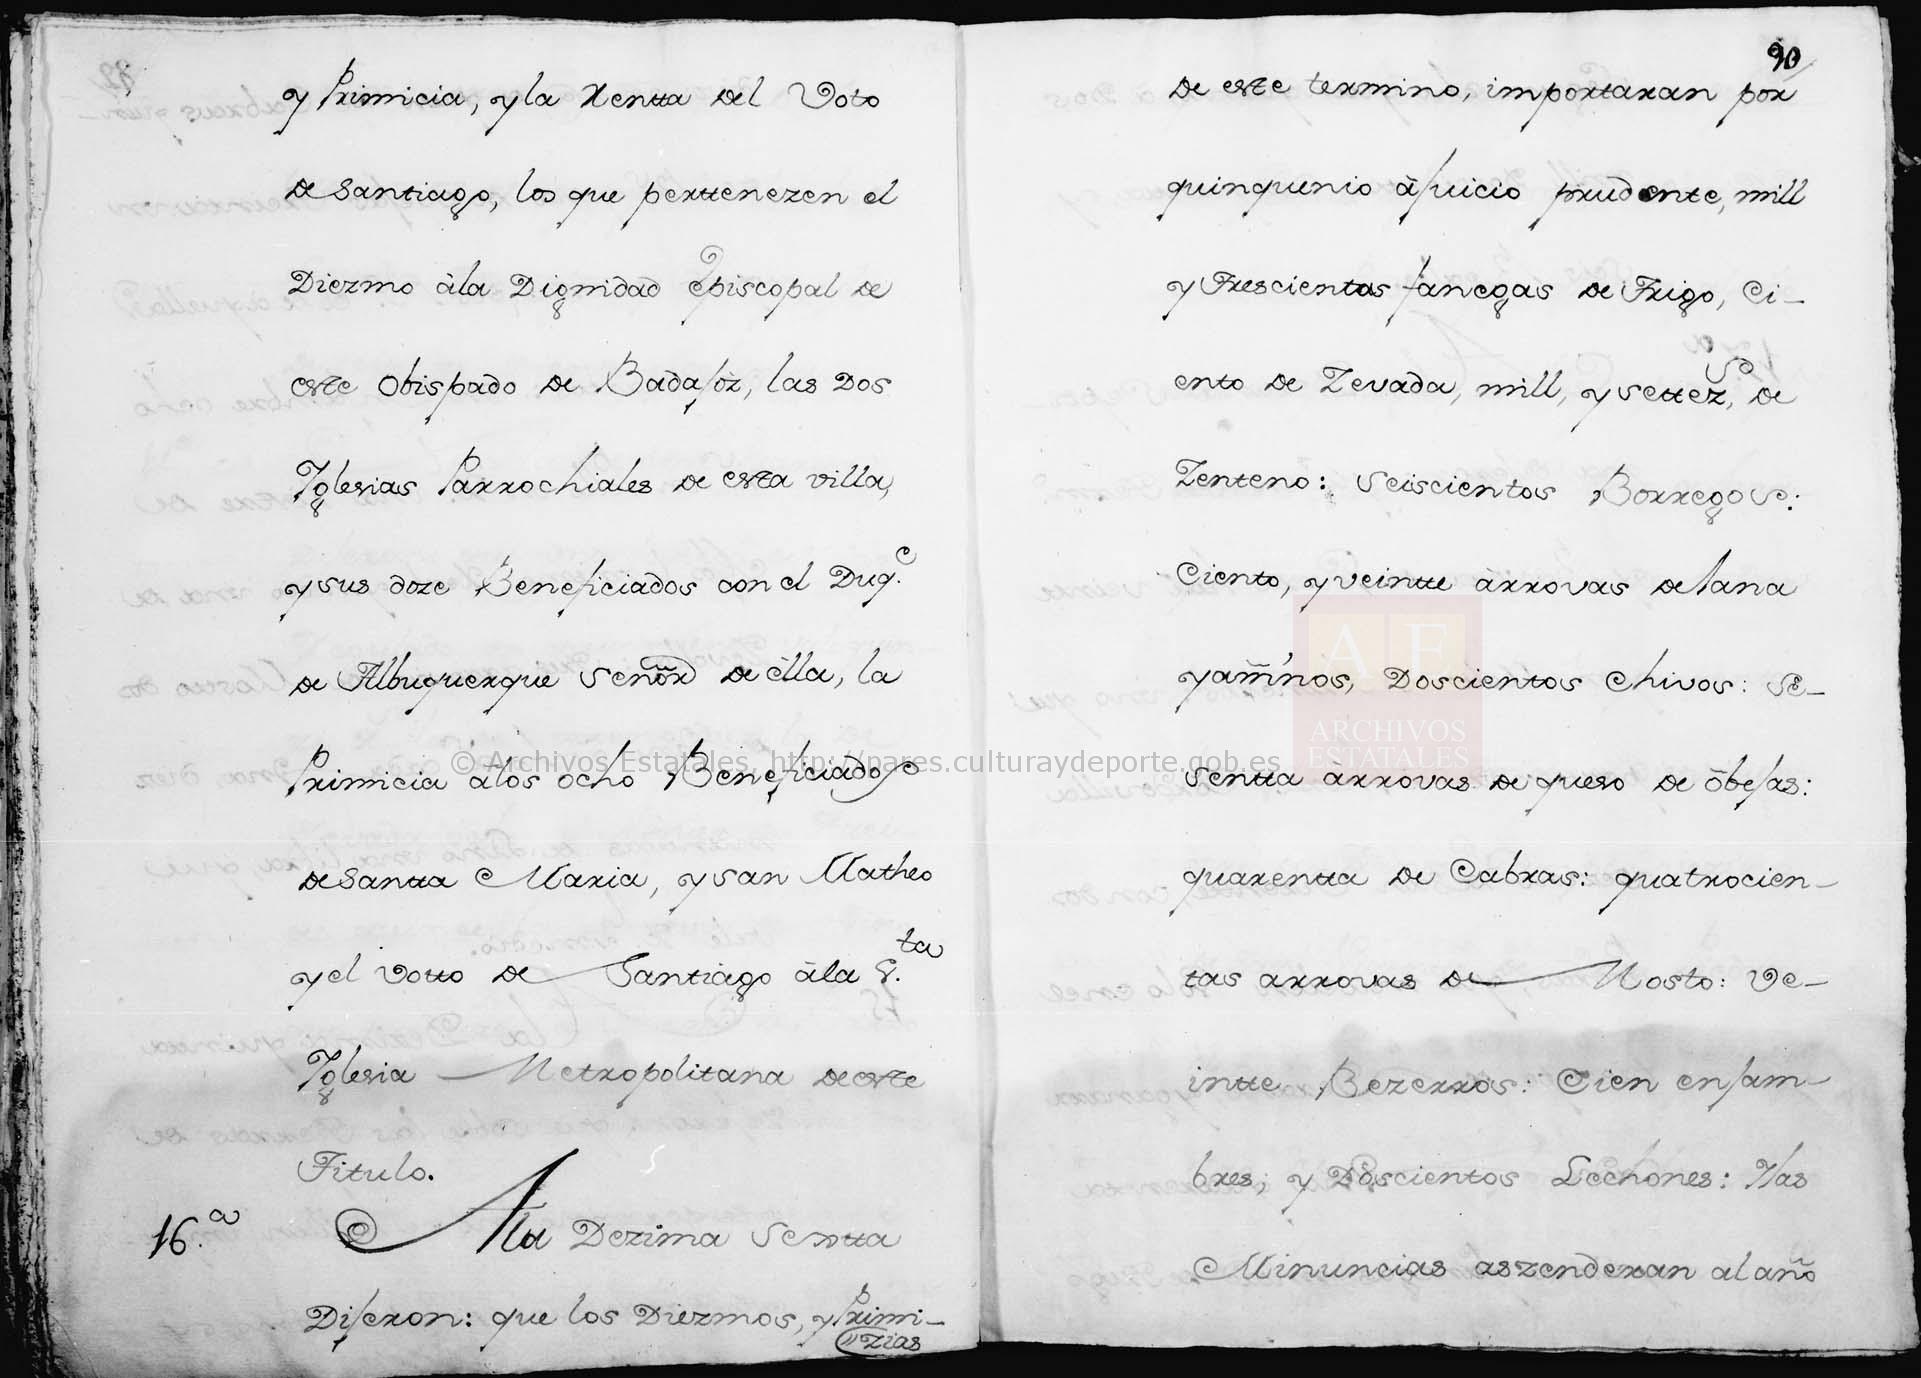 y Primicia, y la Rentta del Voto
de Santiago, los que perttenezen el
Diezmo àla Dignidad Episcopal de
este Obispado de Badajoz, las Dos
Yglesias Parrochiales de esta villa,
y sus doze Beneficiados con el Duq.e
de Alburquerque Señor de èlla, la
Primicia àlos ocho Beneficiados
de Santta Maria, y San Matheo
y el Votto de Santiago àla S.ta
Yglesia Metropolitana de este
Titulo.
16.a A la Dezima Sextta
Dijeron: que los Diezmos, y Primi-
zias
90
de este termino, importaran por
quinquenio àjuicio prudente, mill
y Trescientas fanegas de Trigo, Ci-
ento de Zevada, mill, y settez.s de
Zenteno: Seiscientos Borregos:
Ciento, y veintte àrrovas de lana
y amños, Doscientos Chivos: Se-
sentta àrrovas de queso de òbejas:
quarentta de Cabras: quatrocien-
tas arrovas de Mosto: Ve-
intte Bezerros: Cien enjam-
bres; y Doscientos Lechones: Ylas
Minuncias aszenderan al año
© Archivos Estatales, http://pares.culturaydeporte.gob.es
AE
ARCHIVOS
ESTATALES